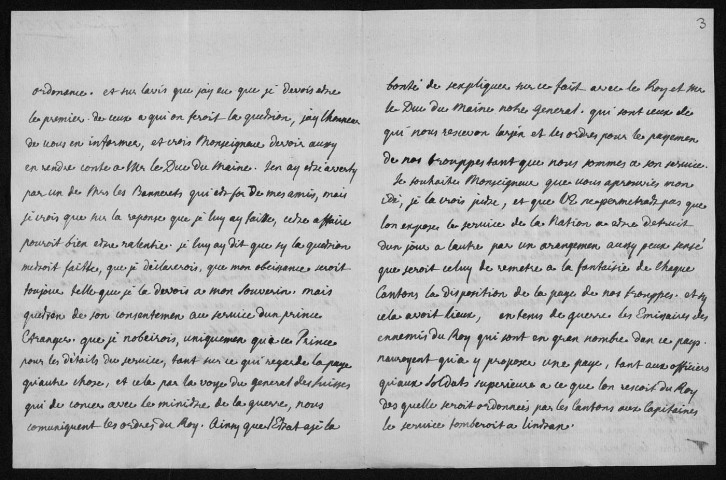 3
ordonance. et sur lavis que jay eu que je devois estre
le premier de ceux a qui on feroit la question, jay lhonneur
de vous en informer, et crois Monseigneur devoir aussy
en rendre conte a Mr le Duc du Maine. Jen ay esté averty
par un de Mrs les Bannerets qui est for de mes amis, mais
je crois que sur la reponse que je luy ay faitte, cette affaire
pouroit bien estre ralentie. je luy ay dit que sy la question
metoit faitte, que je déclarerois, que mon obeissance seroit
toujour telle que je la devois a mon souverin mais
quetion de son consentemen au service dun prince
Etranger. que je nobeirois, uniquemen qu'a ce Prince
pour les détails du service, tant sur ce qui regarde la paye
qu'autre chose, et cela par la voye du general des suisses
qui de concer avec le ministre de la guerre, nous
comuniquent les ordres du Roy. Ainsy que l'Estat aje la
bonté de sexpliquer sur ce fait avec le Roy et Mr
le Duc du Maine notre General. qui sont ceux de
qui nous resevons larjen et les ordres pour le payemen
de nos trouppes tant que nous sommes a son service.
Je souhaite Monseigneur que vous aprouviés mon
idé, je la crois juste, et que VE ne permettra pas que
lon expose le service de la Nation a estre detruit
dun jour a lautre par un arangemen aussy peux sensé
que seroit celuy de remetre a la fantaisie de chaque
Cantons la disposition de la paye de nos trouppes. et sy
cela avoit lieux, en tens de guerre les Emissaires des
ennemis du Roy qui sont en gran nombre dans ce pays.
nauroyent qu'a y proposer une paye, tant aux officiers
qu'aux soldats superieure a ce que lon resoit du Roy
des quelle seroit ordonnée par les Cantons aux Capitaines
le service tomberoit a linstan.